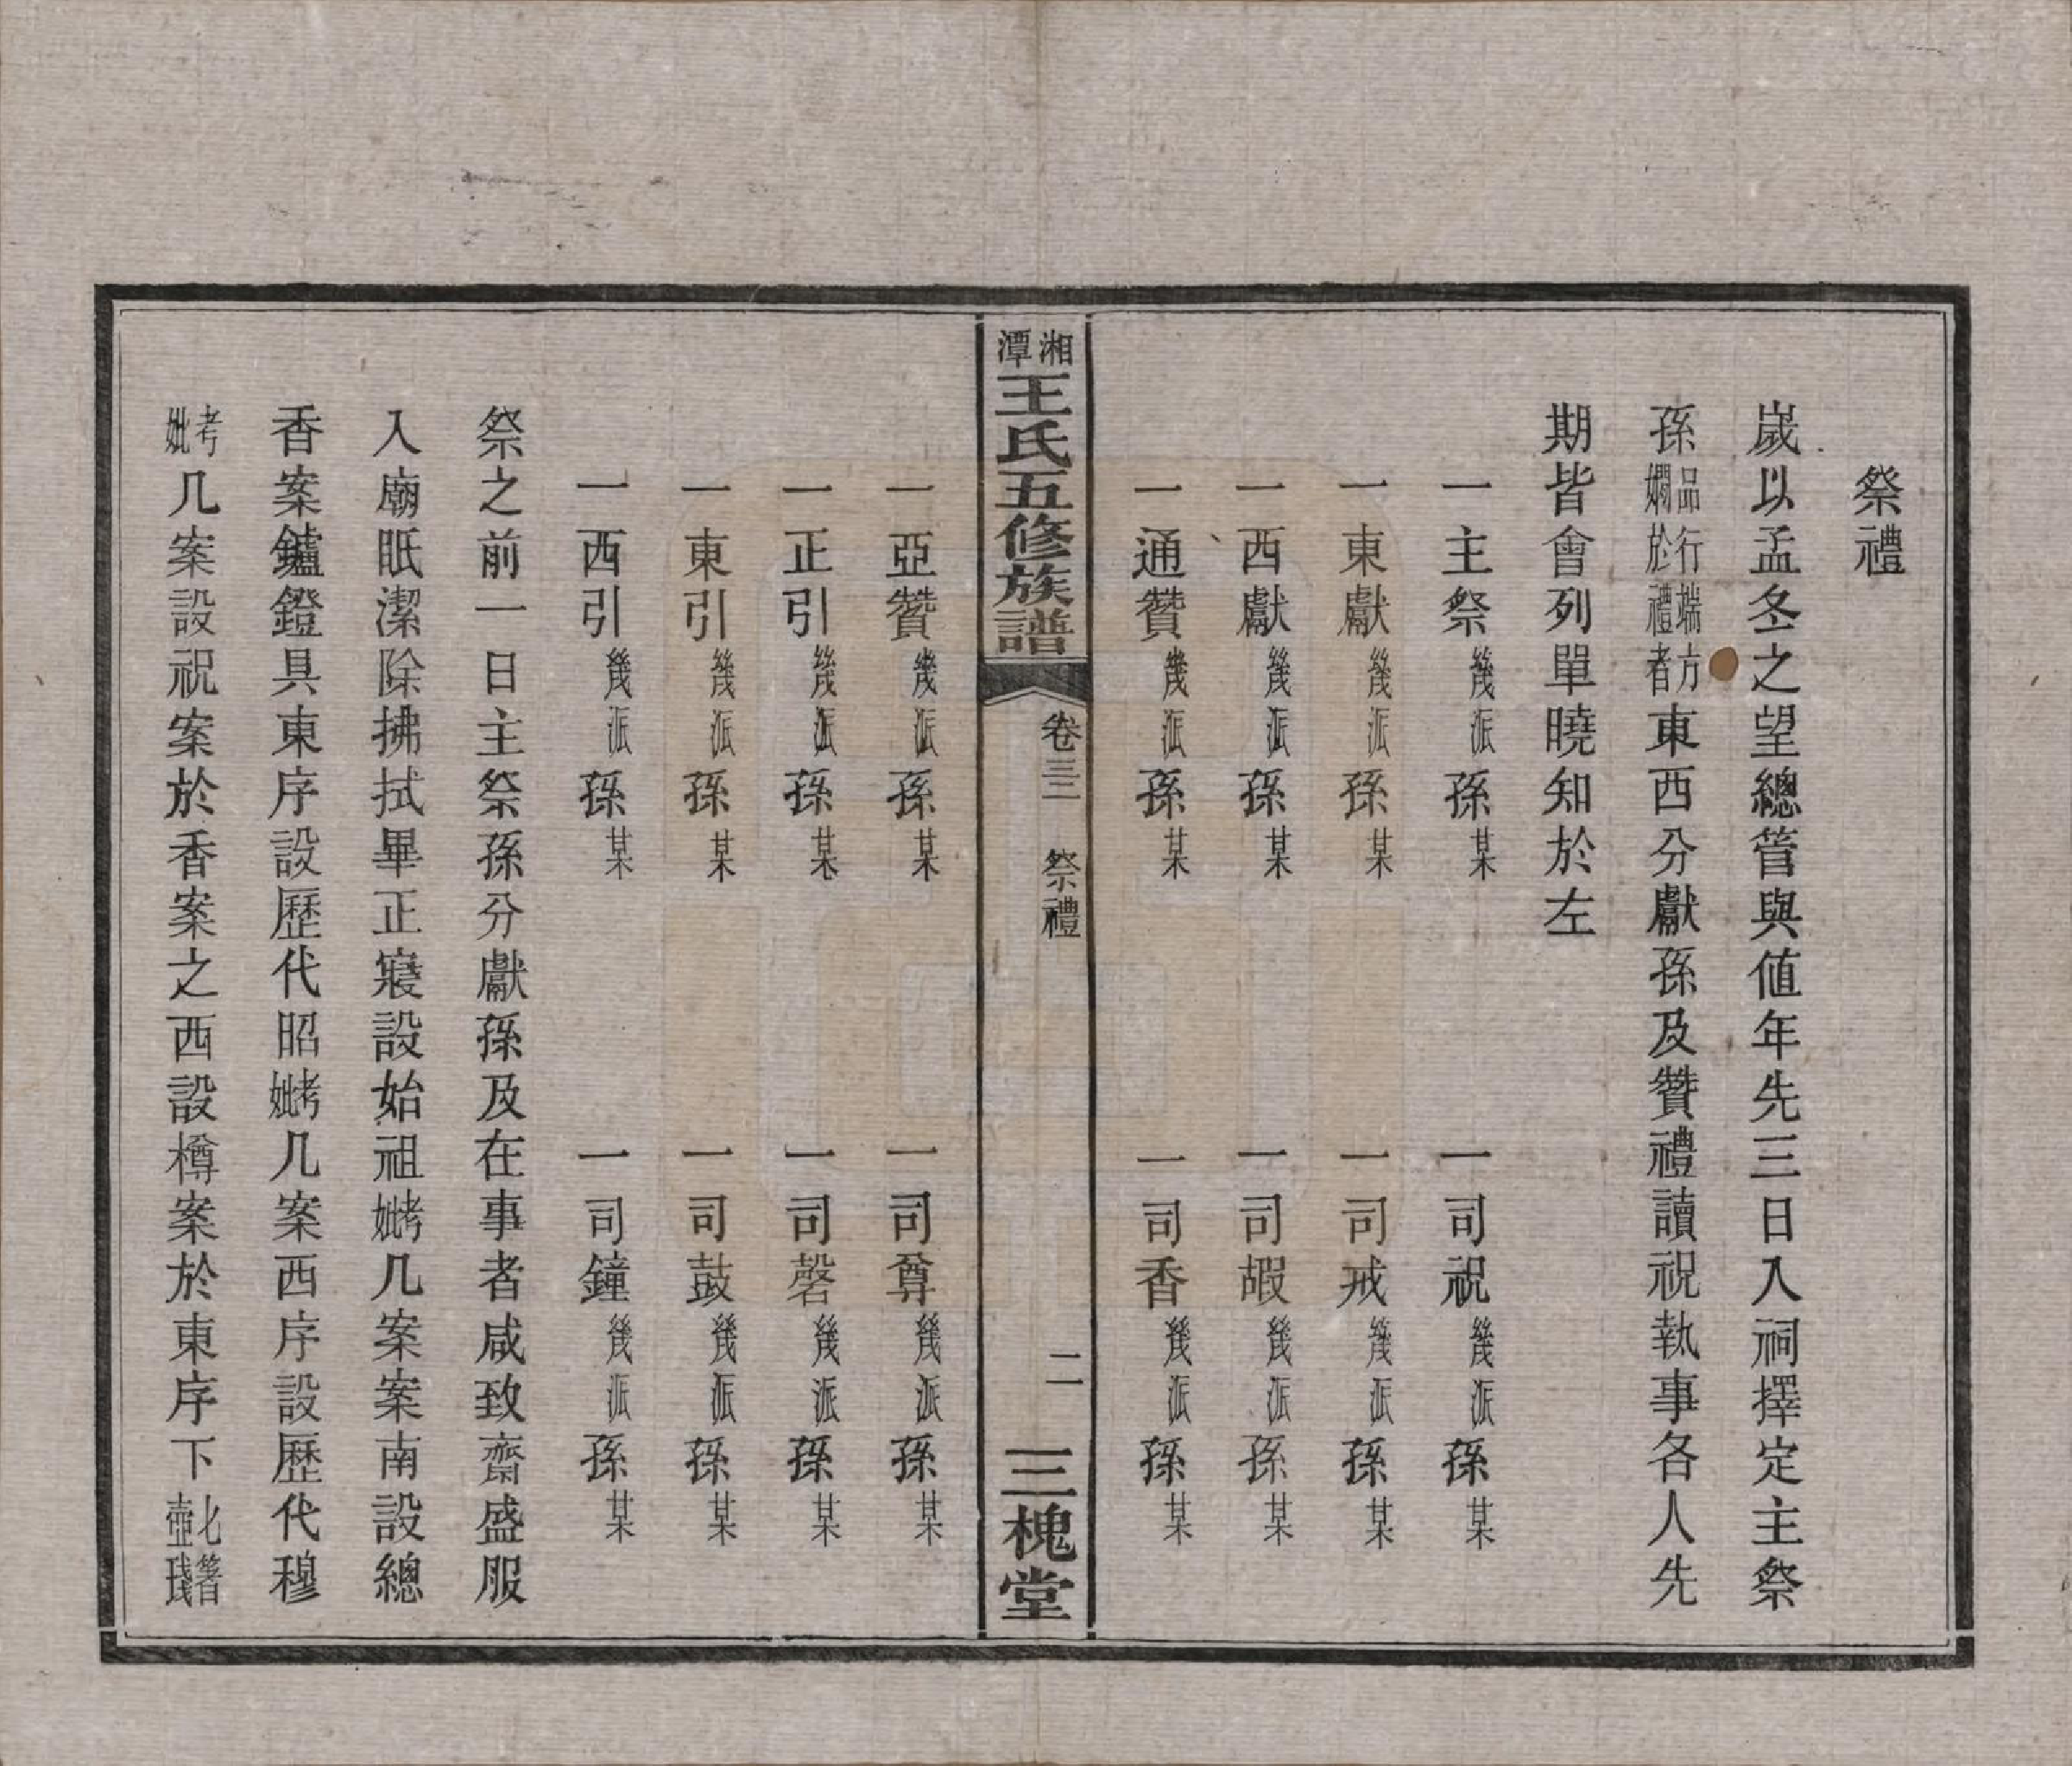 祭禮
歲以孟冬之望總管與值年先三日入祠擇定主祭
孫品行端方嫻於禮者東西分獻孫及贊禮讀祝執事各人先
期皆會列單曉知於左
一主祭幾派孫某 一司祝幾派孫某
一東獻幾派孫某 一司戒幾派孫某
一西獻幾派孫某 一司嘏幾派孫某
一通贊幾派孫某 一司香幾派孫某
湘潭王氏五修族譜 卷三 祭禮 二 三槐堂
一亞贊幾派孫某 一司尊幾派孫某
一正引幾派孫某 一司磬幾派孫某
一東引幾派孫某 一司鼓幾派孫某
一西引幾派孫某 一司鐘幾派孫某
祭之前一日主祭孫分獻孫及在事者咸致齋盛服
入廟眂潔除拂拭畢正寢設始祖考妣几案案南設總
香案鑪鐙具東序設歷代昭考妣几案西序設歷代穆
考妣几案設祝案於香案之西設樽案於東序下匕箸壺琖